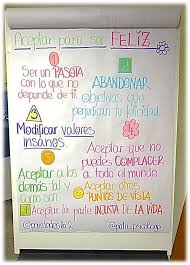 Aceptar para ser FELIZ
Ser un PASOTA
con lo que no
depende de ti.
ABANDONAR
Objetivos que
perjudican tu felicidad.
3
Modificar valores
insanos.
Aceptar que no
puedes COMPLACER
a todo el mundo
Aceptar a los
demás tal y como
son.
Aceptar otros
PUNTOS DE VISTA
Aceptar la parte INJUSTA DE LA VIDA